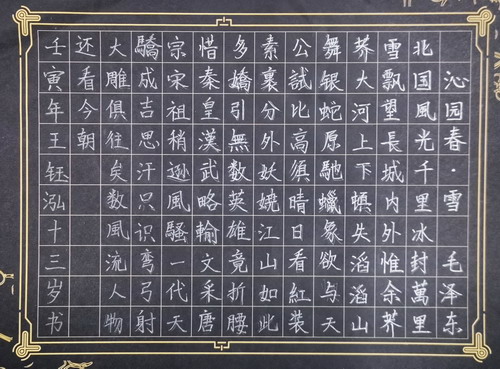 沁园春·雪 毛泽东
北国風光千里冰封萬里
雪飘望長城内外惟余莽
莽大河上下頓失滔滔山
舞银蛇原馳蠟象欲与天
公試比高須晴日看紅装
素裹分外妖娆江山如此
多嬌引無数英雄竟折腰
惜秦皇漢武略輸文采唐
宗宋祖稍遜風騷一代天
驕成吉思汗只識弯弓射
大雕俱往矣数風流人物
还看今朝
壬寅年王钰泓十三岁书